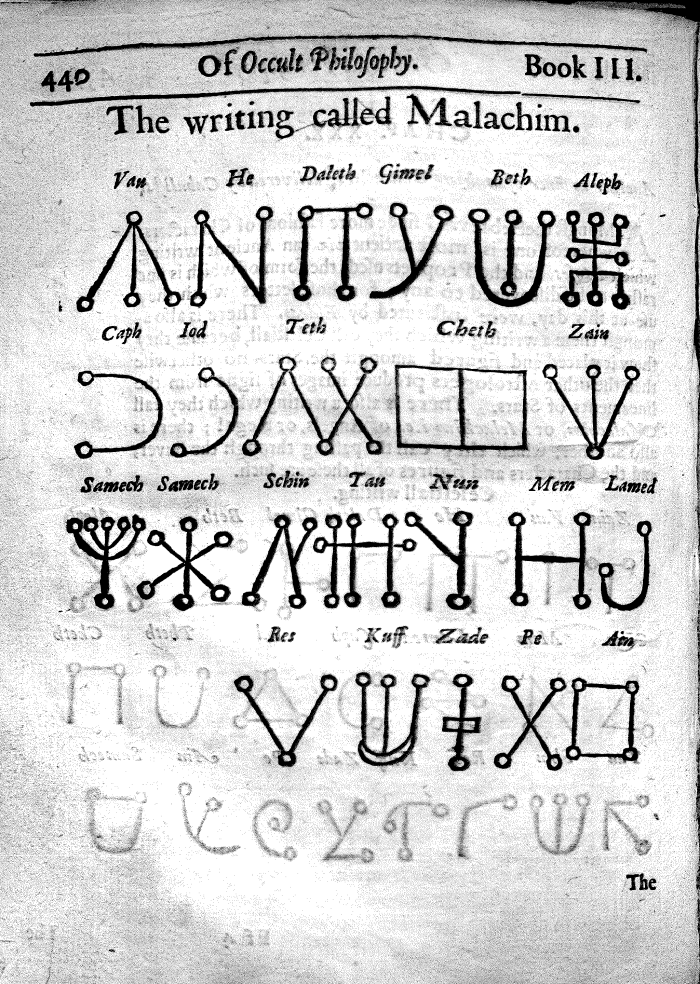 440 Of Occult Philoſophy. Book III.
The writing called Malachim.
Vau He Daleth Gimel Beth Aleph
Caph Iod Teth Cheth Zain
Samech Samech Schin Tau Nun Mem Lamed
Res Kuff Zade Pe Ain
The